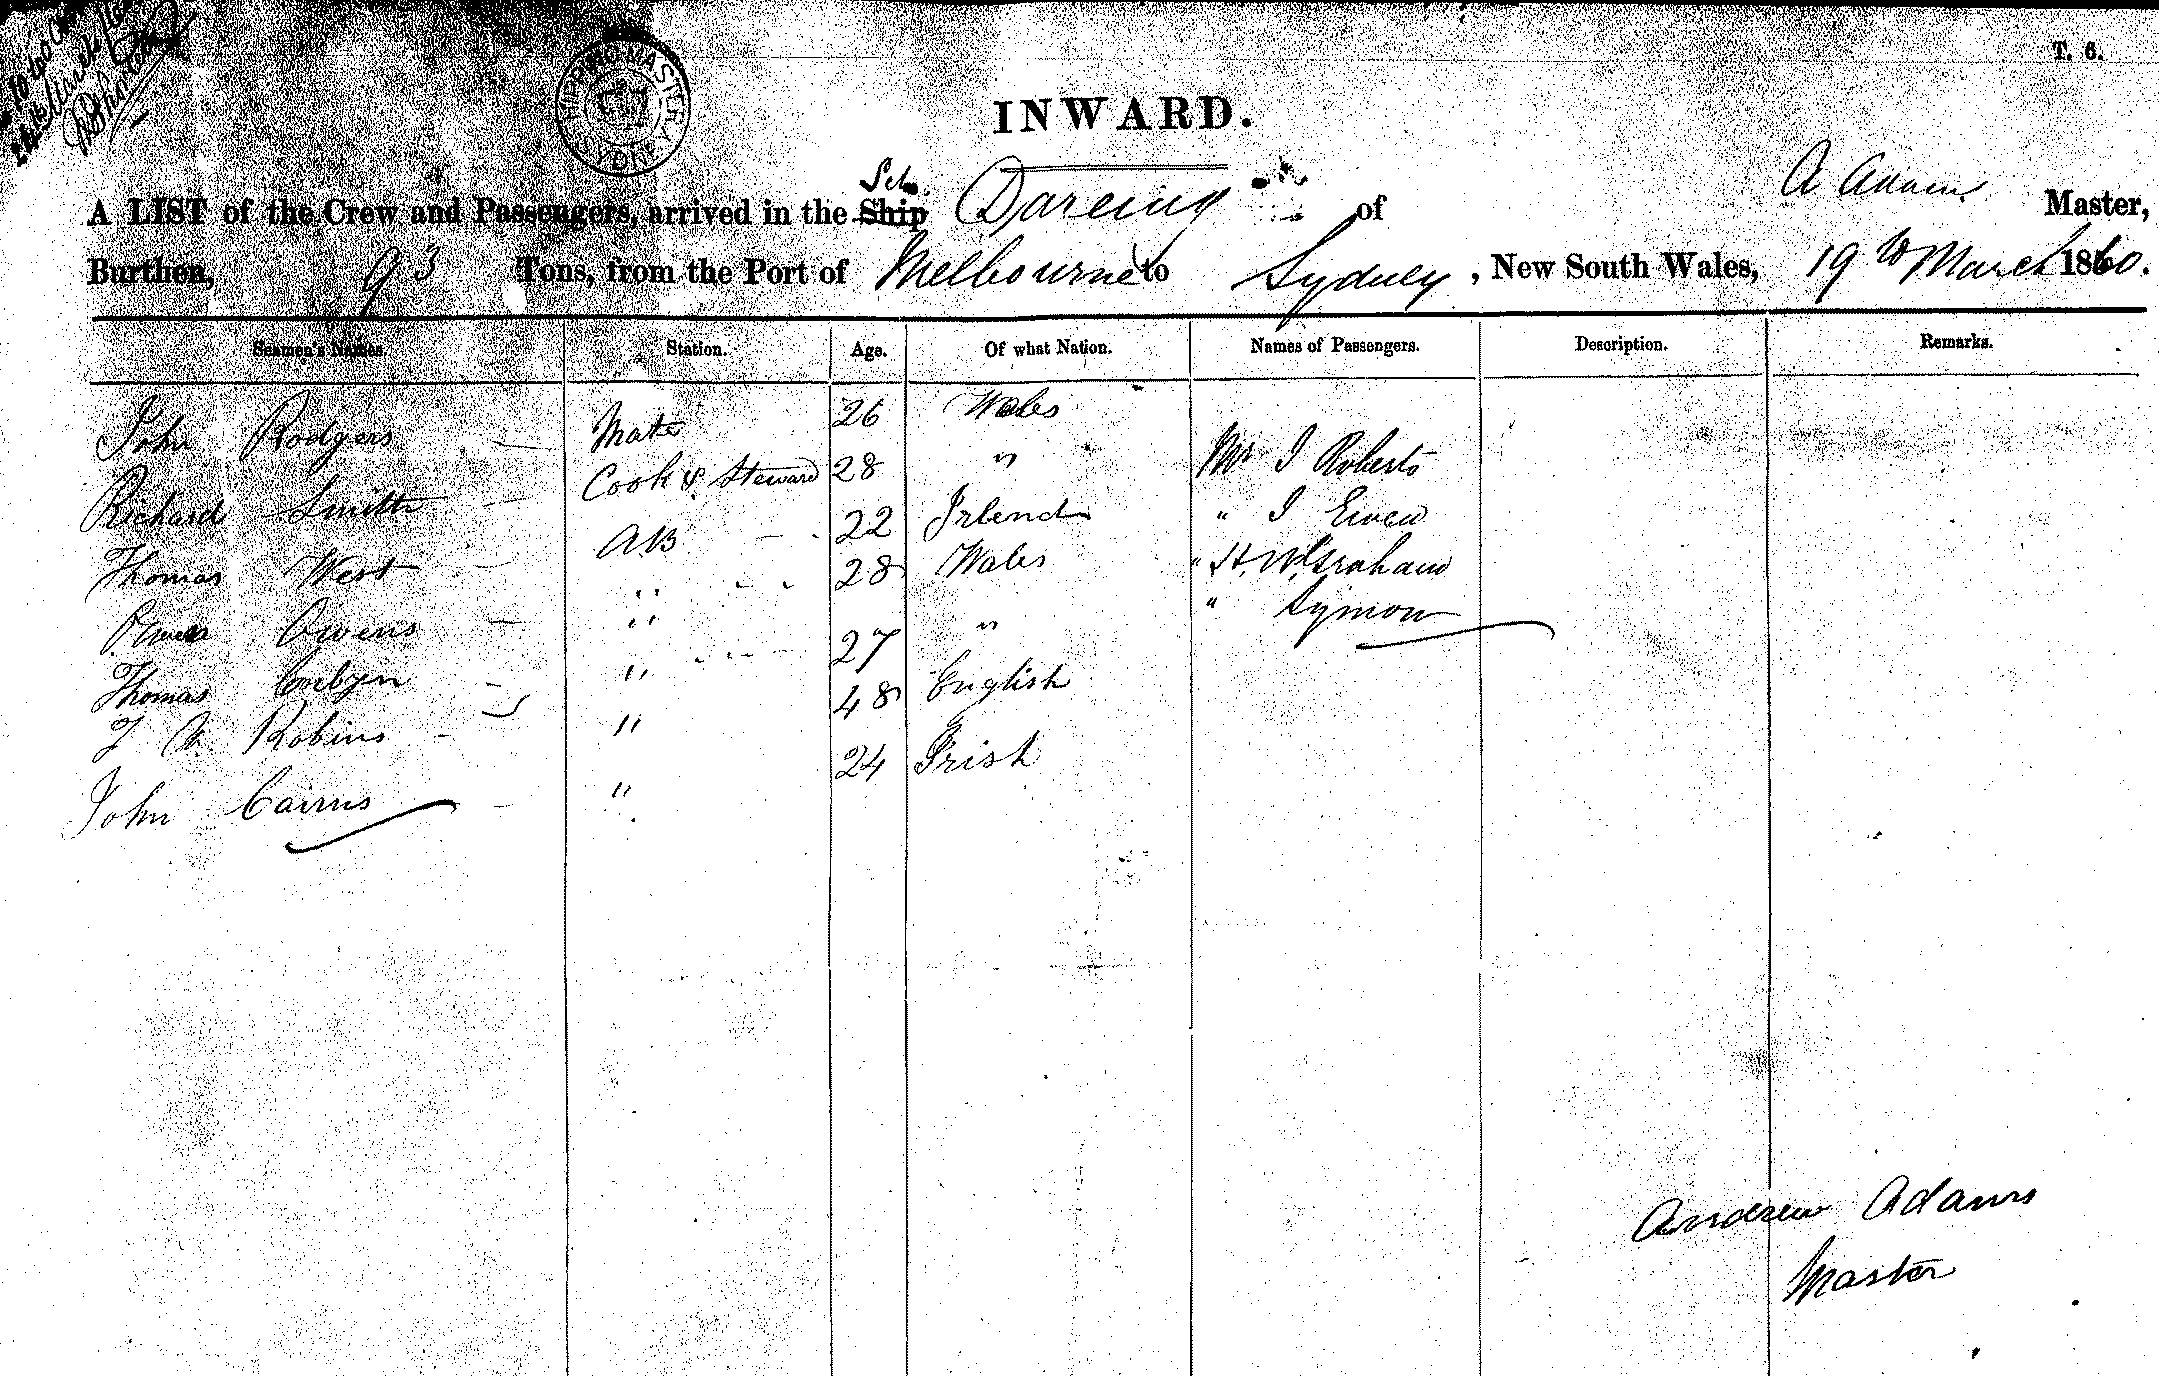 T. 6.
SHIPPING MASTER SYDNEY
INWARD.
Sch.
A LIST of the Crew and Passengers, arrived in the Ship Dareing of A Adams Master,
Burthen, 93 Tons, from the Port of Melbourne to Sydney, New South Wales, 19th March 1860.
Seamen's Names. Station. Age. Of what Nation. Names of Passengers. Description. Remarks.
John Rodgers Mate 26 Wales
Richard Smith Cook & Steward 28 " Mr J Roberts
Thomas West AB 22 Irlend " J Ewen
Owen Owens " 28 Wales " H. Graham
Thomas " 27 " " Symon
Robins " 48 English
John Cairns " 24 Irish
Andrew Adams
Master